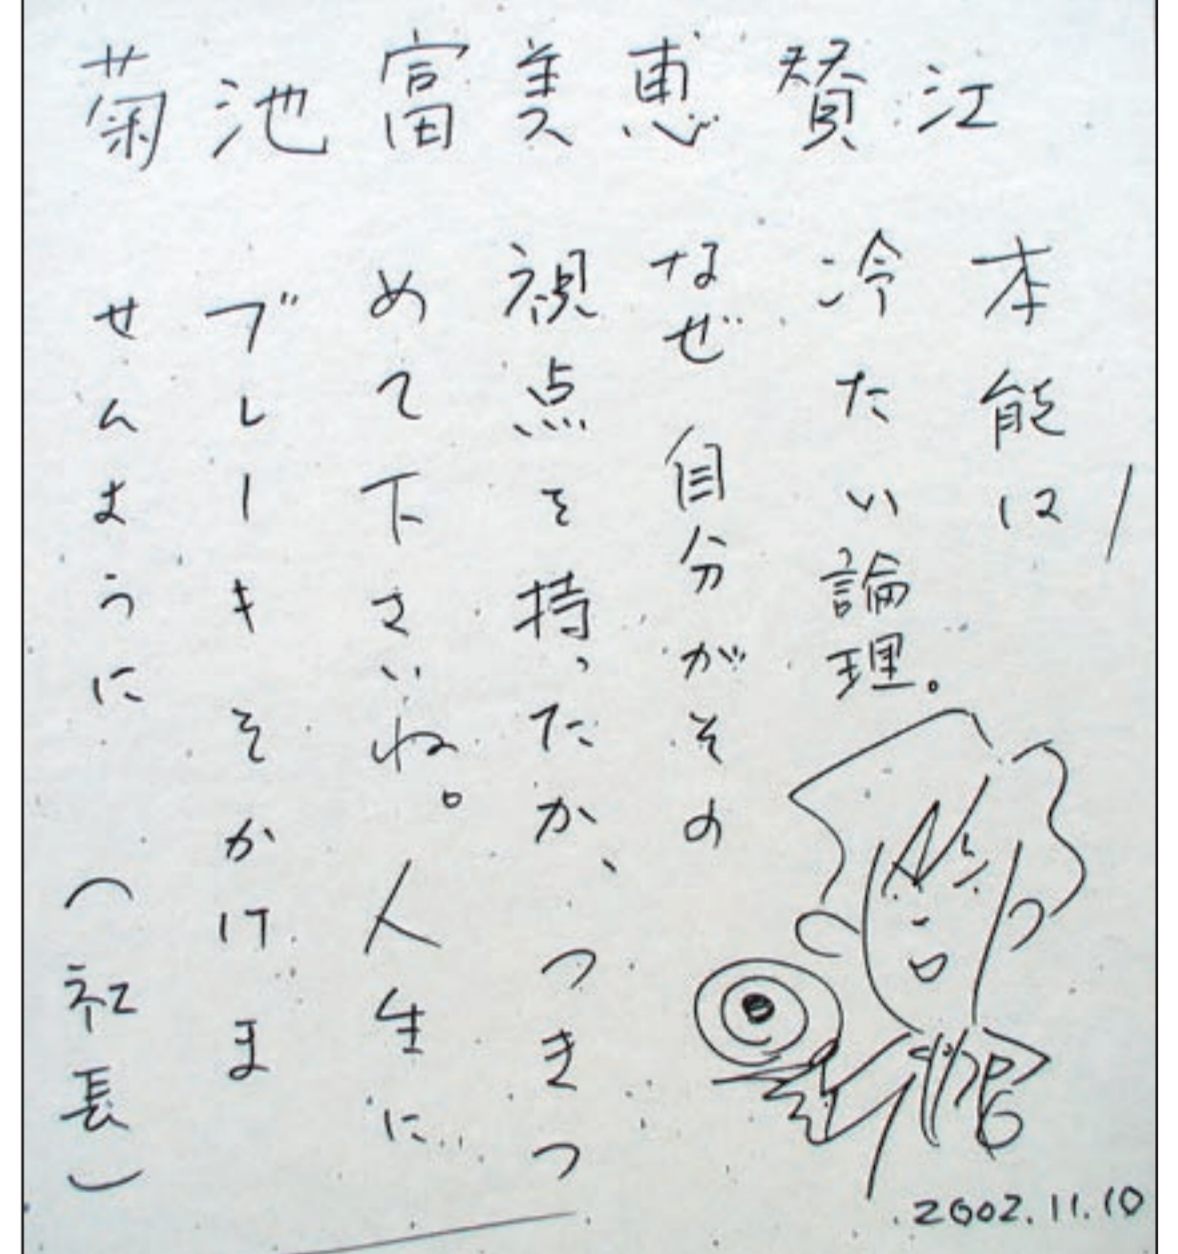 菊池富美恵賛江
本能は
冷たい論理。
なぜ自分がその
視点を持ったか、つきつ
めて下さいね。人生に
ブレーキそかけま
せんように
(社長)
2002.11.10